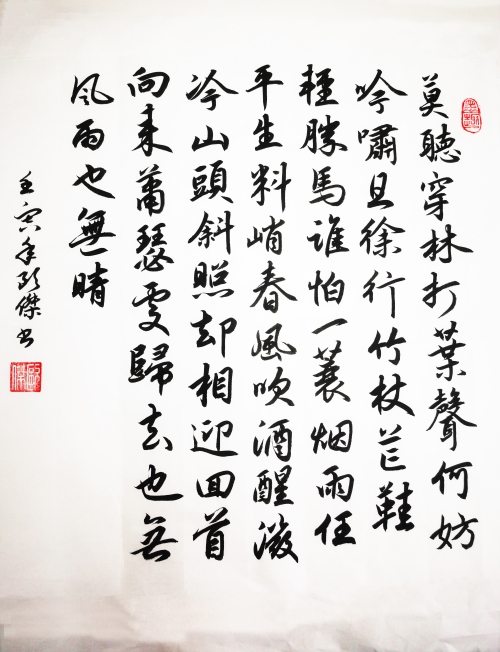 莫聽穿林打葉聲何妨
吟嘯且徐行竹杖芒鞋
輕勝馬誰怕一蓑烟雨任
平生料峭春風吹酒醒微
冷山頭斜照却相迎回首
向来蕭瑟處歸去也無
風雨也無晴
壬寅年傑书